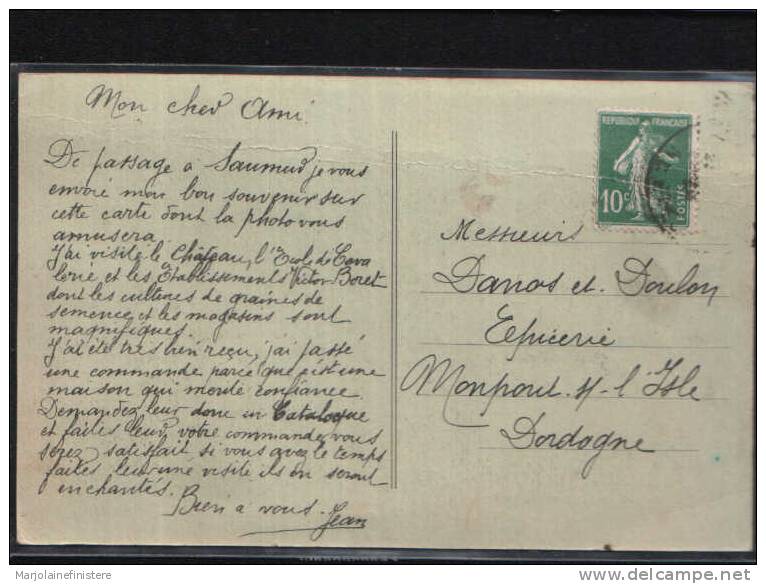 Mon cher Ami
De passage a Saumur je vous
envoie mon bon souvenir sur
cette carte dont la photo vous
amusera
J'ai visité le Château, l'Ecole de Cava
lerie et les Etablissements Victor Boret
dont les cultures de graines de
semence et les magasins sont
magnifiques.
J'ai été très bien reçu, j'ai passé
une commande parce que c'est une
maison qui mérite confiance.
Demandez leur donc un Catalogue
et faites leur votre commande, vous
serez satisfait si vous avez le temps
faites leur une visite ils en seront
enchantés.
Bien a vous.
Jean
REPUBLIQUE FRANÇAISE
10c
POSTES
Messieurs
Danos et Doulon
Epicerie
Monpont s/ l'Isle
Dordogne
Marjolainefinistere
delcampe.net